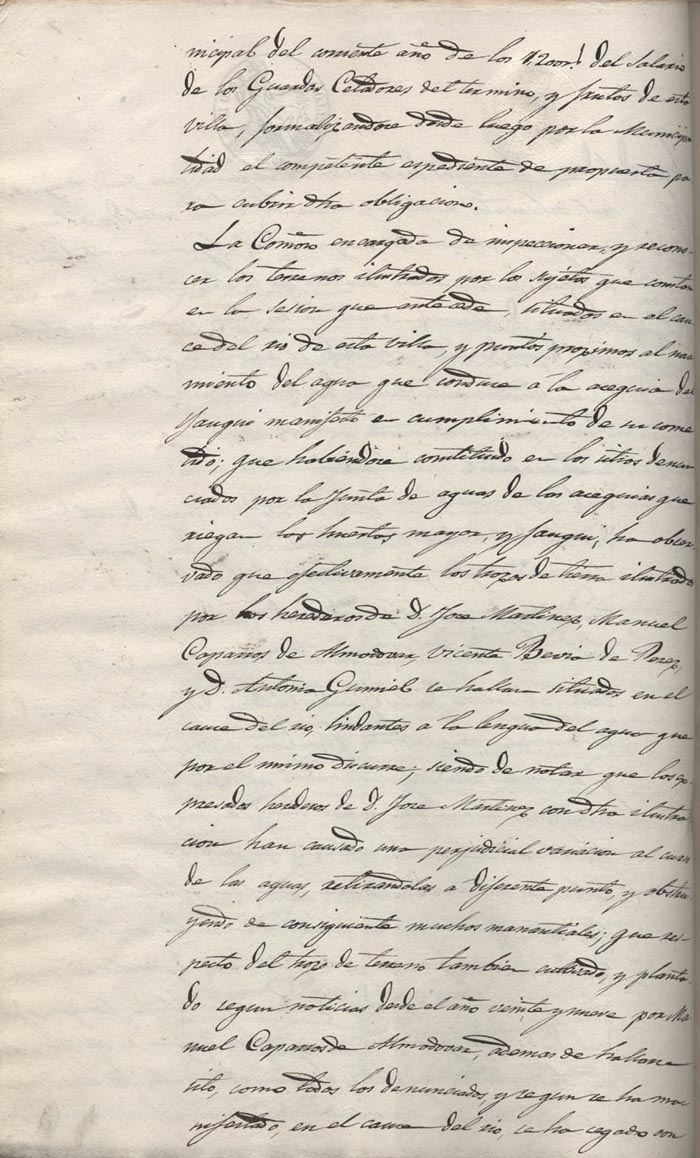 nicipal del corriente año de los 1,200rs del salario
de los Guardas Celadores del termino, y frutos de esta
villa, formalizandose desde luego por la Municipa
lidad el competente espediente de propuesta pa
ra cubrir dha obligacion.
La Comon encargada de inspeccionar, y recono-
cer los terrenos ilustrados por los sujetos que constan
en la sesion que antecede, situados en el cau
ce del rio de esta villa, y puntos proximos al naci
miento del agua que conduce á la acequia del
Jauqui manifestó en cumplimiento de su come
tido; que habiendose constituido en los sitios denun
ciados por la Junta de aguas de las acequias que
riegan los huertos mayor, y Jauqui, ha obser
vado que efectivamente los trozos de tierra ilustrados
por los herederos de D. Jose Martinez, Manuel
Caparros de Almodovar, Vicente Bevia de Perez,
y D. Antonio Gumiel se hallan situados en el
cauce del rio, lindantes á la lengua del agua que
por el mismo discurre; siendo de notar que los es-
presados herederos de D. Jose Martinez con dha ilustra
cion han causado una perjudicial variacion al curso
de las aguas, retirandolas a diferente punto, y obstru
yendo de consiguiente muchos manantiales; que res-
pecto del trozo de terreno tambien cultivado, y planta
do segun noticias desde el año veinte y nueve por Ma
nuel Caparros de Almodovar, ademas de hallarse
sito, como todos los denunciados, y segun se ha ma
nifestado, en el cauce del rio, se ha cegado con